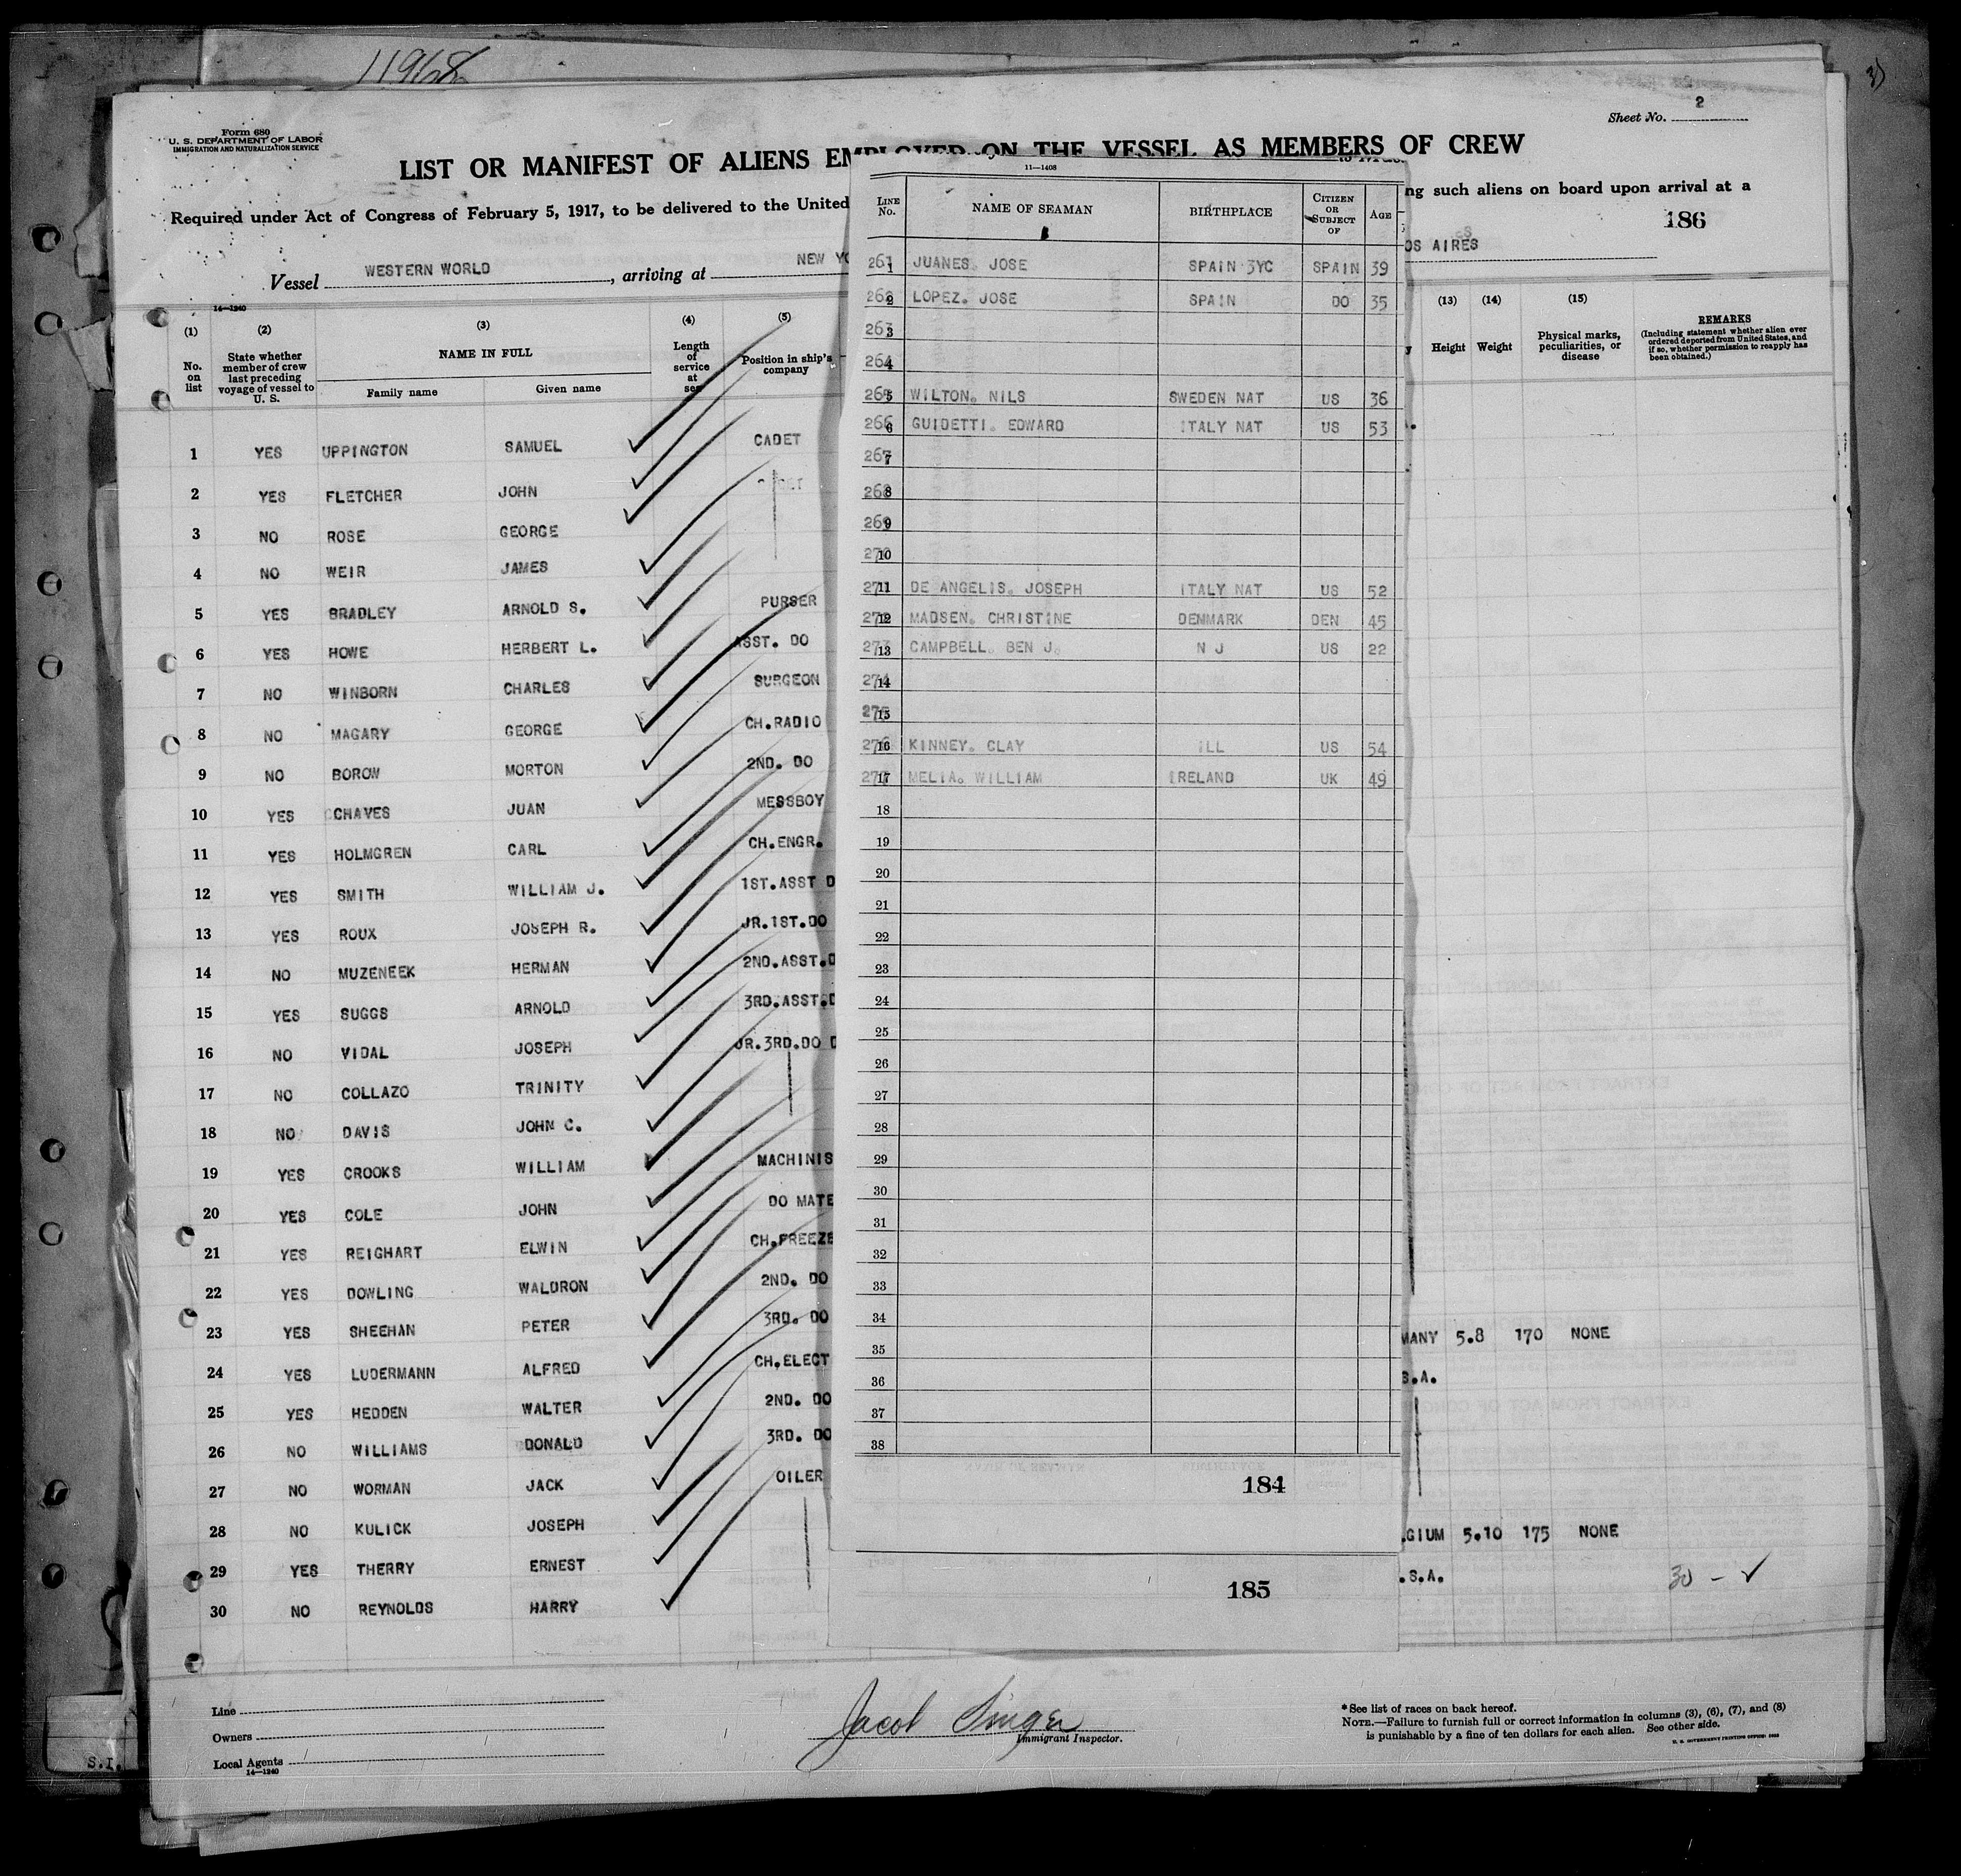 11968
Form 680
U. S. DEPARTMENT OF LABOR
IMMIGRATION AND NATURALIZATION SERVICE
Sheet No. 2
LIST OR MANIFEST OF ALIENS EMPLOYED ON THE VESSEL AS MEMBERS OF CREW
Required under Act of Congress of February 5, 1917, to be delivered to the United
ng such aliens on board upon arrival at a
186
Vessel WESTERN WORLD, arriving at NEW YO
OS AIRES
14—1240
(1) (2) (3) (4) (5)
No. on list
State whether member of crew last preceding voyage of vessel to U. S.
NAME IN FULL
Family name Given name
Length of service at sea
Position in ship's company
(13) (14) (15)
Height Weight
Physical marks, peculiarities, or disease
REMARKS
(Including statement whether alien ever ordered deported from United States, and if so, whether permission to reapply has been obtained.)
1 YES UPPINGTON SAMUEL CADET
2 YES FLETCHER JOHN
3 NO ROSE GEORGE
4 NO WEIR JAMES
5 YES BRADLEY ARNOLD S. PURSER
6 YES HOWE HERBERT L. ASST. DO
7 NO WINBORN CHARLES SURGEON
8 NO MAGARY GEORGE CH.RADIO
9 NO BOROW MORTON 2ND. DO
10 YES CHAVES JUAN MESSBOY
11 YES HOLMGREN CARL CH.ENGR.
12 YES SMITH WILLIAM J. 1ST.ASST D
13 YES ROUX JOSEPH R. JR.1ST.DO
14 NO MUZENEEK HERMAN 2ND.ASST.D
15 YES SUGGS ARNOLD 3RD.ASST.D
16 NO VIDAL JOSEPH JR.3RD.DO D
17 NO COLLAZO TRINITY
18 NO DAVIS JOHN C.
19 YES CROOKS WILLIAM MACHINIS
20 YES COLE JOHN DO MATE
21 YES REIGHART ELWIN CH.FREEZE
22 YES DOWLING WALDRON 2ND. DO
23 YES SHEEHAN PETER 3RD. DO
24 YES LUDERMANN ALFRED CH.ELECT
25 YES HEDDEN WALTER 2ND. DO
26 NO WILLIAMS DONALD 3RD. DO
27 NO WORMAN JACK OILER
28 NO KULICK JOSEPH
29 YES THERRY ERNEST
30 NO REYNOLDS HARRY
MANY 5.8 170 NONE
S.A.
GIUM 5.10 175 NONE
.S.A.
30 – ✓
11—1408
LINE No. NAME OF SEAMAN BIRTHPLACE CITIZEN OR SUBJECT OF AGE
261 1 JUANES. JOSE SPAIN 3YC SPAIN 39
262 2 LOPEZ. JOSE SPAIN DO 35
263 3
264 4
265 5 WILTON. NILS SWEDEN NAT US 36
266 6 GUIDETTI. EDWARD ITALY NAT US 53
267 7
268 8
269 9
270 10
271 11 DE ANGELIS. JOSEPH ITALY NAT US 52
272 12 MADSEN. CHRISTINE DENMARK DEN 45
273 13 CAMPBELL. BEN J. N J US 22
274 14
275 15
276 16 KINNEY. CLAY ILL US 54
277 17 MELIA. WILLIAM IRELAND UK 49
18
19
20
21
22
23
24
25
26
27
28
29
30
31
32
33
34
35
36
37
38
184
185
Line
Owners
Local Agents
14—1240
S.I.
Jacob Singer
Immigrant Inspector.
* See list of races on back hereof.
NOTE.—Failure to furnish full or correct information in columns (3), (6), (7), and (8)
is punishable by a fine of ten dollars for each alien. See other side.
U. S. GOVERNMENT PRINTING OFFICE